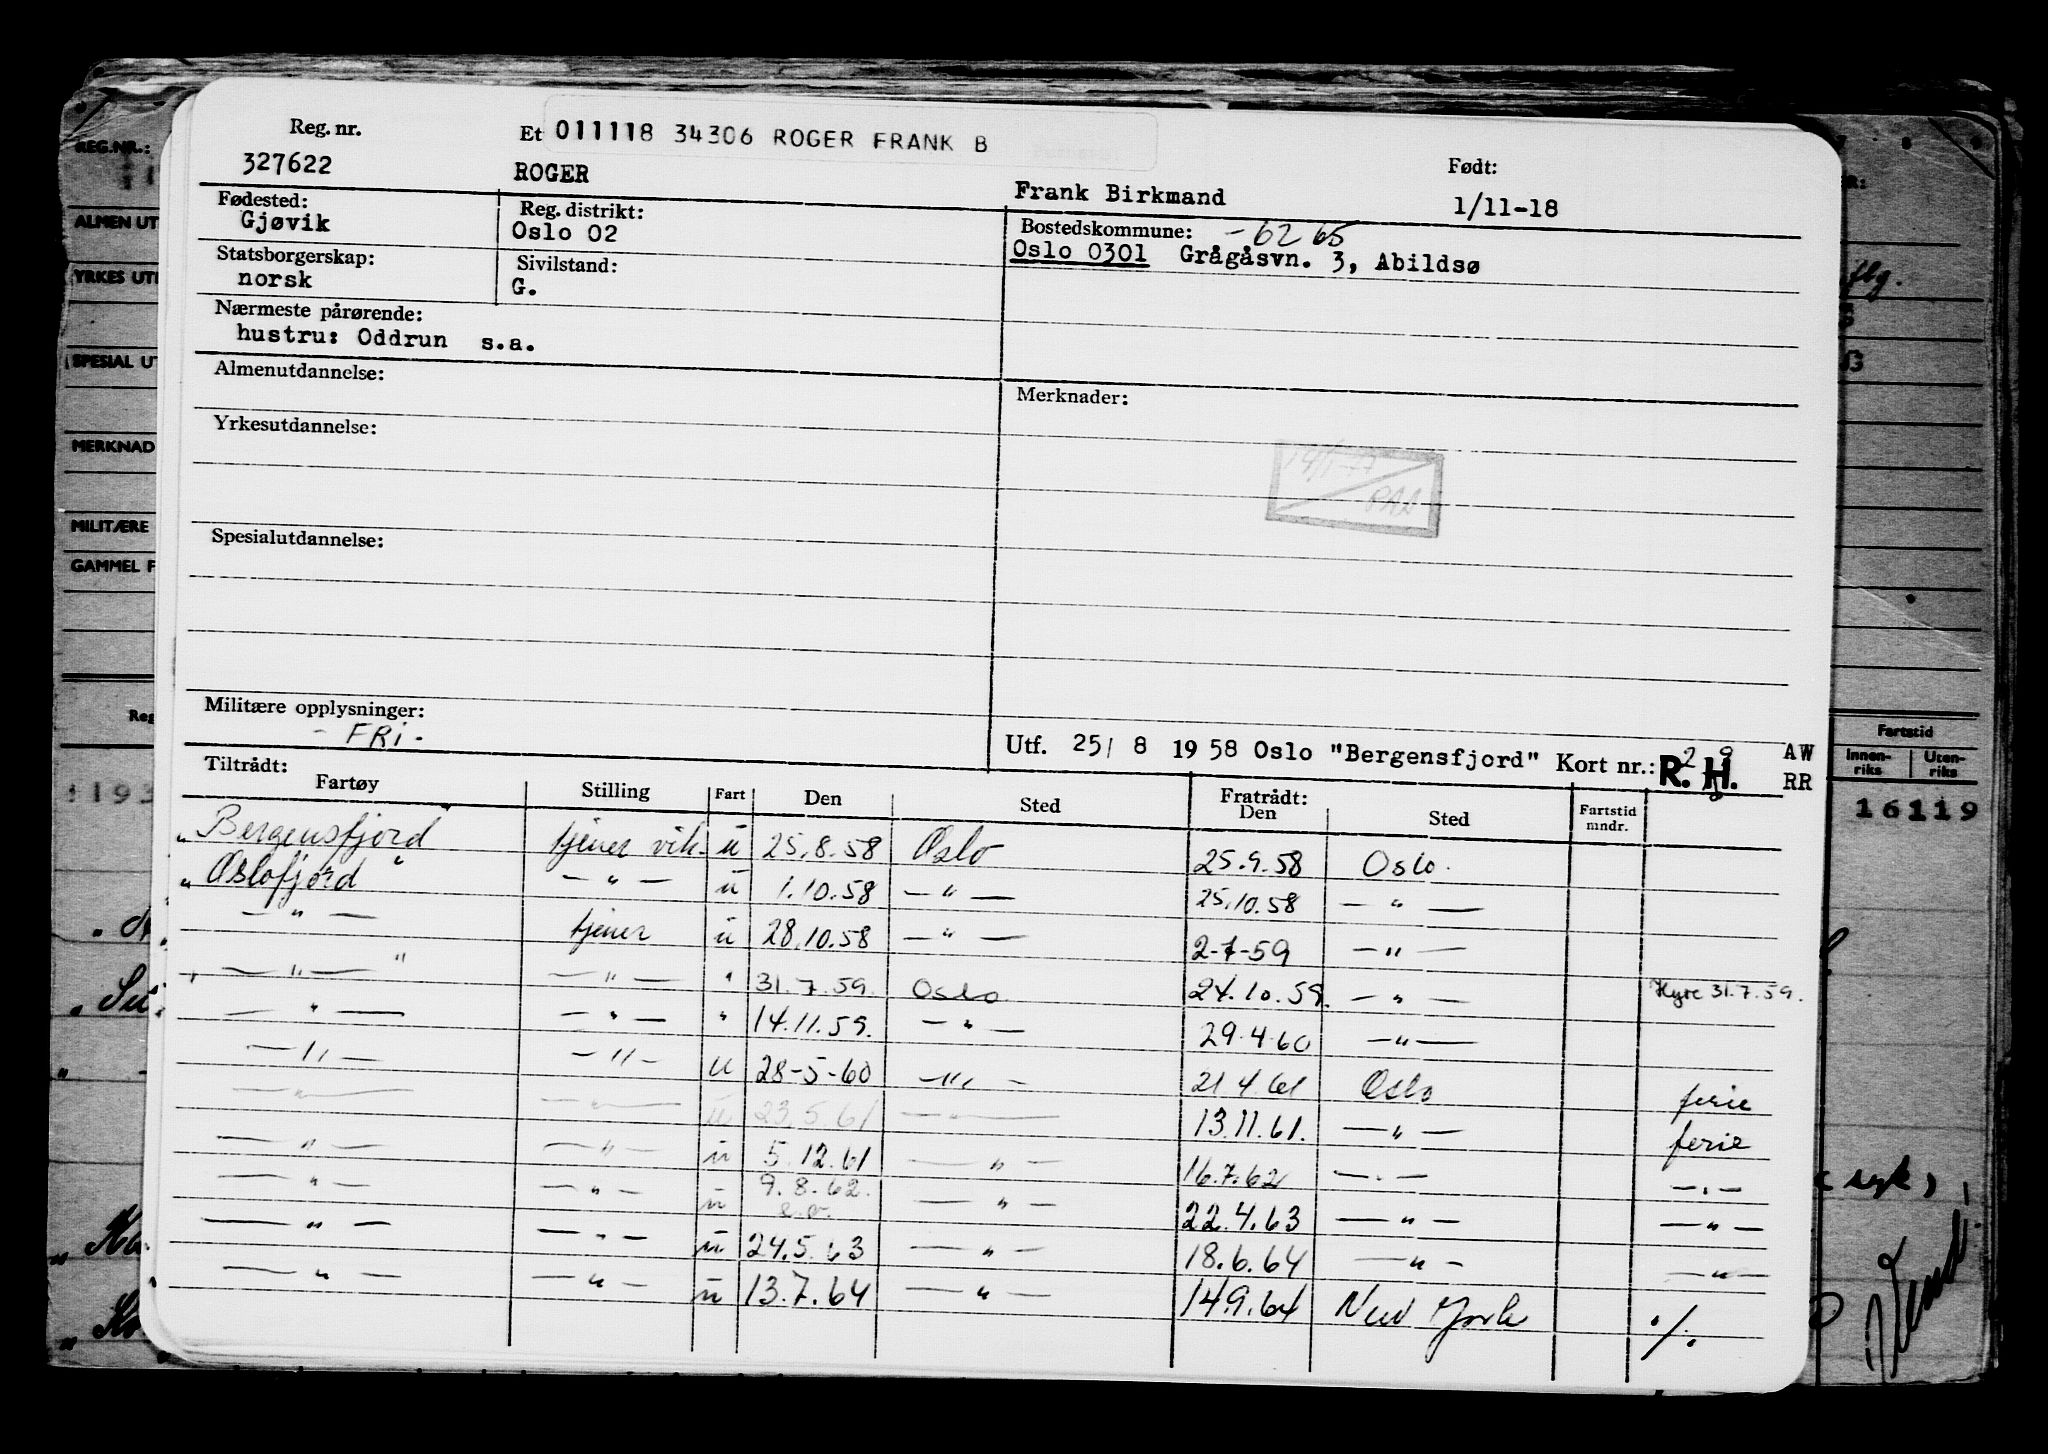 Reg. nr.
Et 011118 34306 ROGER FRANK B
327622 ROGER Frank Birkmand Født: 1/11-18
Fødested: Gjøvik
Reg. distrikt: Oslo 02
Bostedskommune: -6265
Oslo 0301 Grågåsvn. 3, Abildsø
Statsborgerskap: norsk
Sivilstand: G.
Nærmeste pårørende:
hustru: Oddrun s.a.
Almenutdannelse:
Merknader:
Yrkesutdannelse:
Spesialutdannelse:
Militære opplysninger:
- FRi -
Utf. 25/ 8 1958 Oslo "Bergensfjord" Kort nr.: R. H. AW
RR
Tiltrådt: Fratrådt:
Fartøy Stilling Fart Den Sted Den Sted Fartstid mndr.
„ Bergensfjord " tjener vik. u 25.8.58 Oslo 25.9.58 Oslo.
„ Oslofjord — " — u 1.10.58 — " — 25.10.58 — " —
— " — tjener u 28.10.58 — " — 2-7-59 — " —
" — " — " — " — " 31.7.59. Oslo 24.10.59. — " — Hyre 31.7.59.
— " — — " — " 14.11.59. — " — 29.4.60 — " —
— " — — " — u 28-5-60 — " — 21.4.61 Oslo ferie
— " — — " — u 23.5.61 — " — 13.11.61. — " — ferie
— " — — " — u 5.12.61 — " — 16.7.62 — " — — " —
— " — — " — u 9.8.62. — " — 22.4.63 — " — — " —
— " — — " — u 24.5.63 — " — 18.6.64 — " — — " —
— " — — " — u 13.7.64 — " — 14.9.64 New York ./.
REG.NR.:
ALMEN UT
YRKES UT
SPESIAL UT
MERKNAD
MILITÆRE
GAMMEL F
Reg
193
Fartstid
Innen-riks
Uten-riks
16119